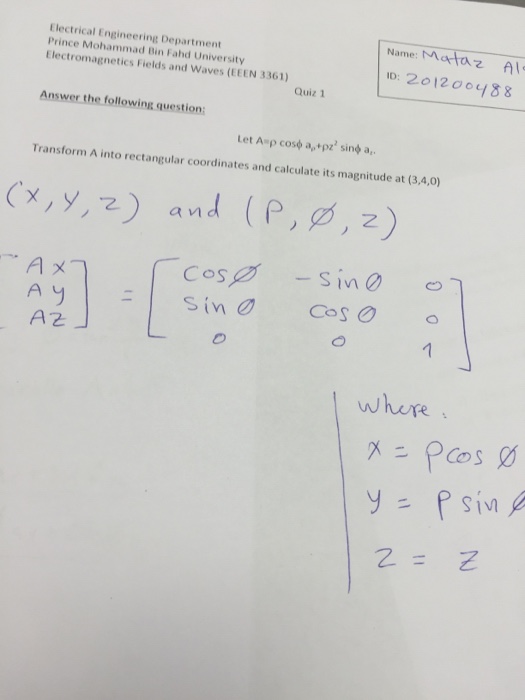 Electrical Engineering Department
Prince Mohammad Bin Fahd University
Electromagnetics Fields and Waves (EEEN 3361)
Name: Mataz
ID: 201200488
Quiz 1
Answer the following question:
Let A=ρ cosϕ aρ+ρz² sinϕ a
Transform A into rectangular coordinates and calculate its magnitude at (3,4,0)
(x, y, z) and (ρ, Ø, z)
Ax cosØ -sinθ 0
Ay = sinθ cosθ 0
AZ 0 0 1
where:
x = ρcos Ø
y = ρ sin
z = z